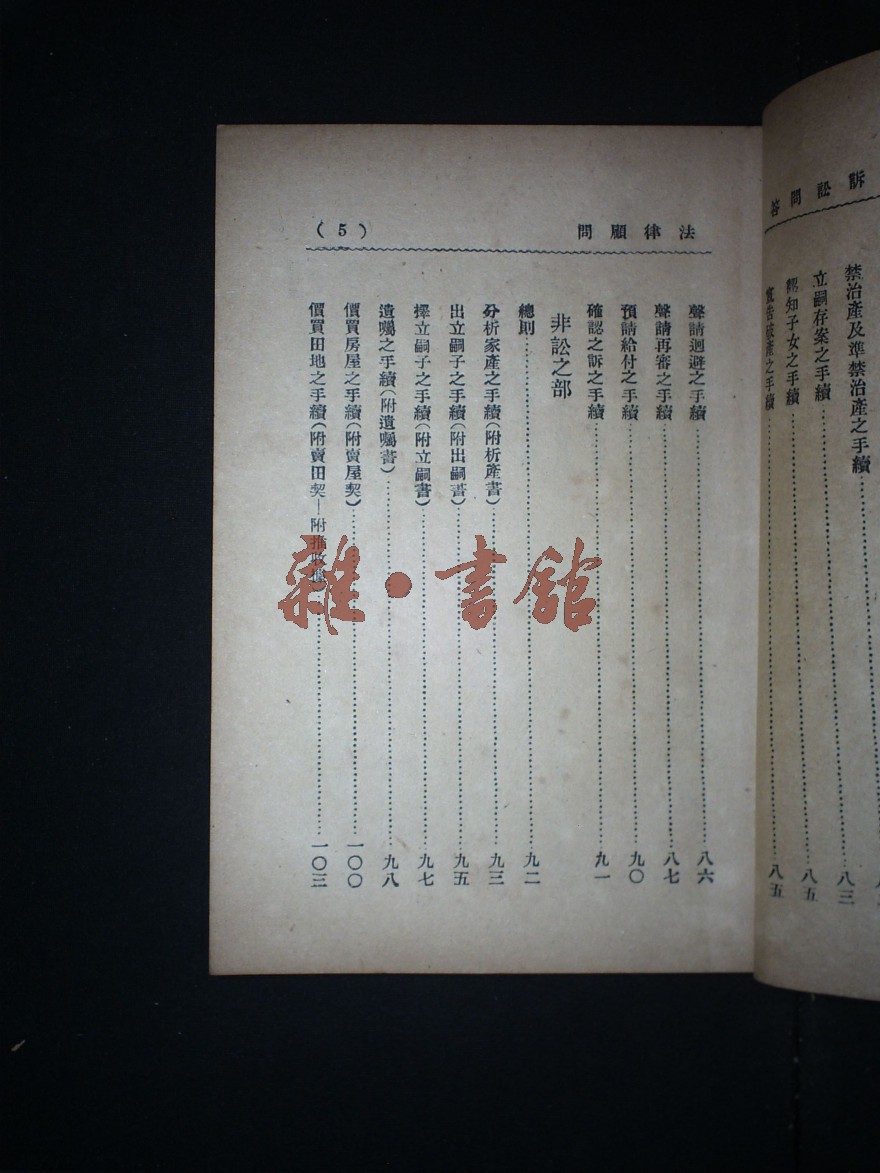 訴訟問答
禁治產及準禁治產之手續
立嗣存案之手續……八三
認知子女之手續……八五
宣告破產之手續……八五
法律顧問
(5)
聲請迴避之手續……八六
聲請再審之手續……八七
預請給付之手續……九〇
確認之訴之手續……九一
非訟之部
總則……九二
分析家產之手續(附析產書)……九三
出立嗣子之手續(附出嗣書)……九五
擇立嗣子之手續(附立嗣書)……九七
遺囑之手續(附遺囑書)……九八
價買房屋之手續(附賣屋契)……一〇〇
價買田地之手續(附賣田契—附推收……一〇三
雜·書館